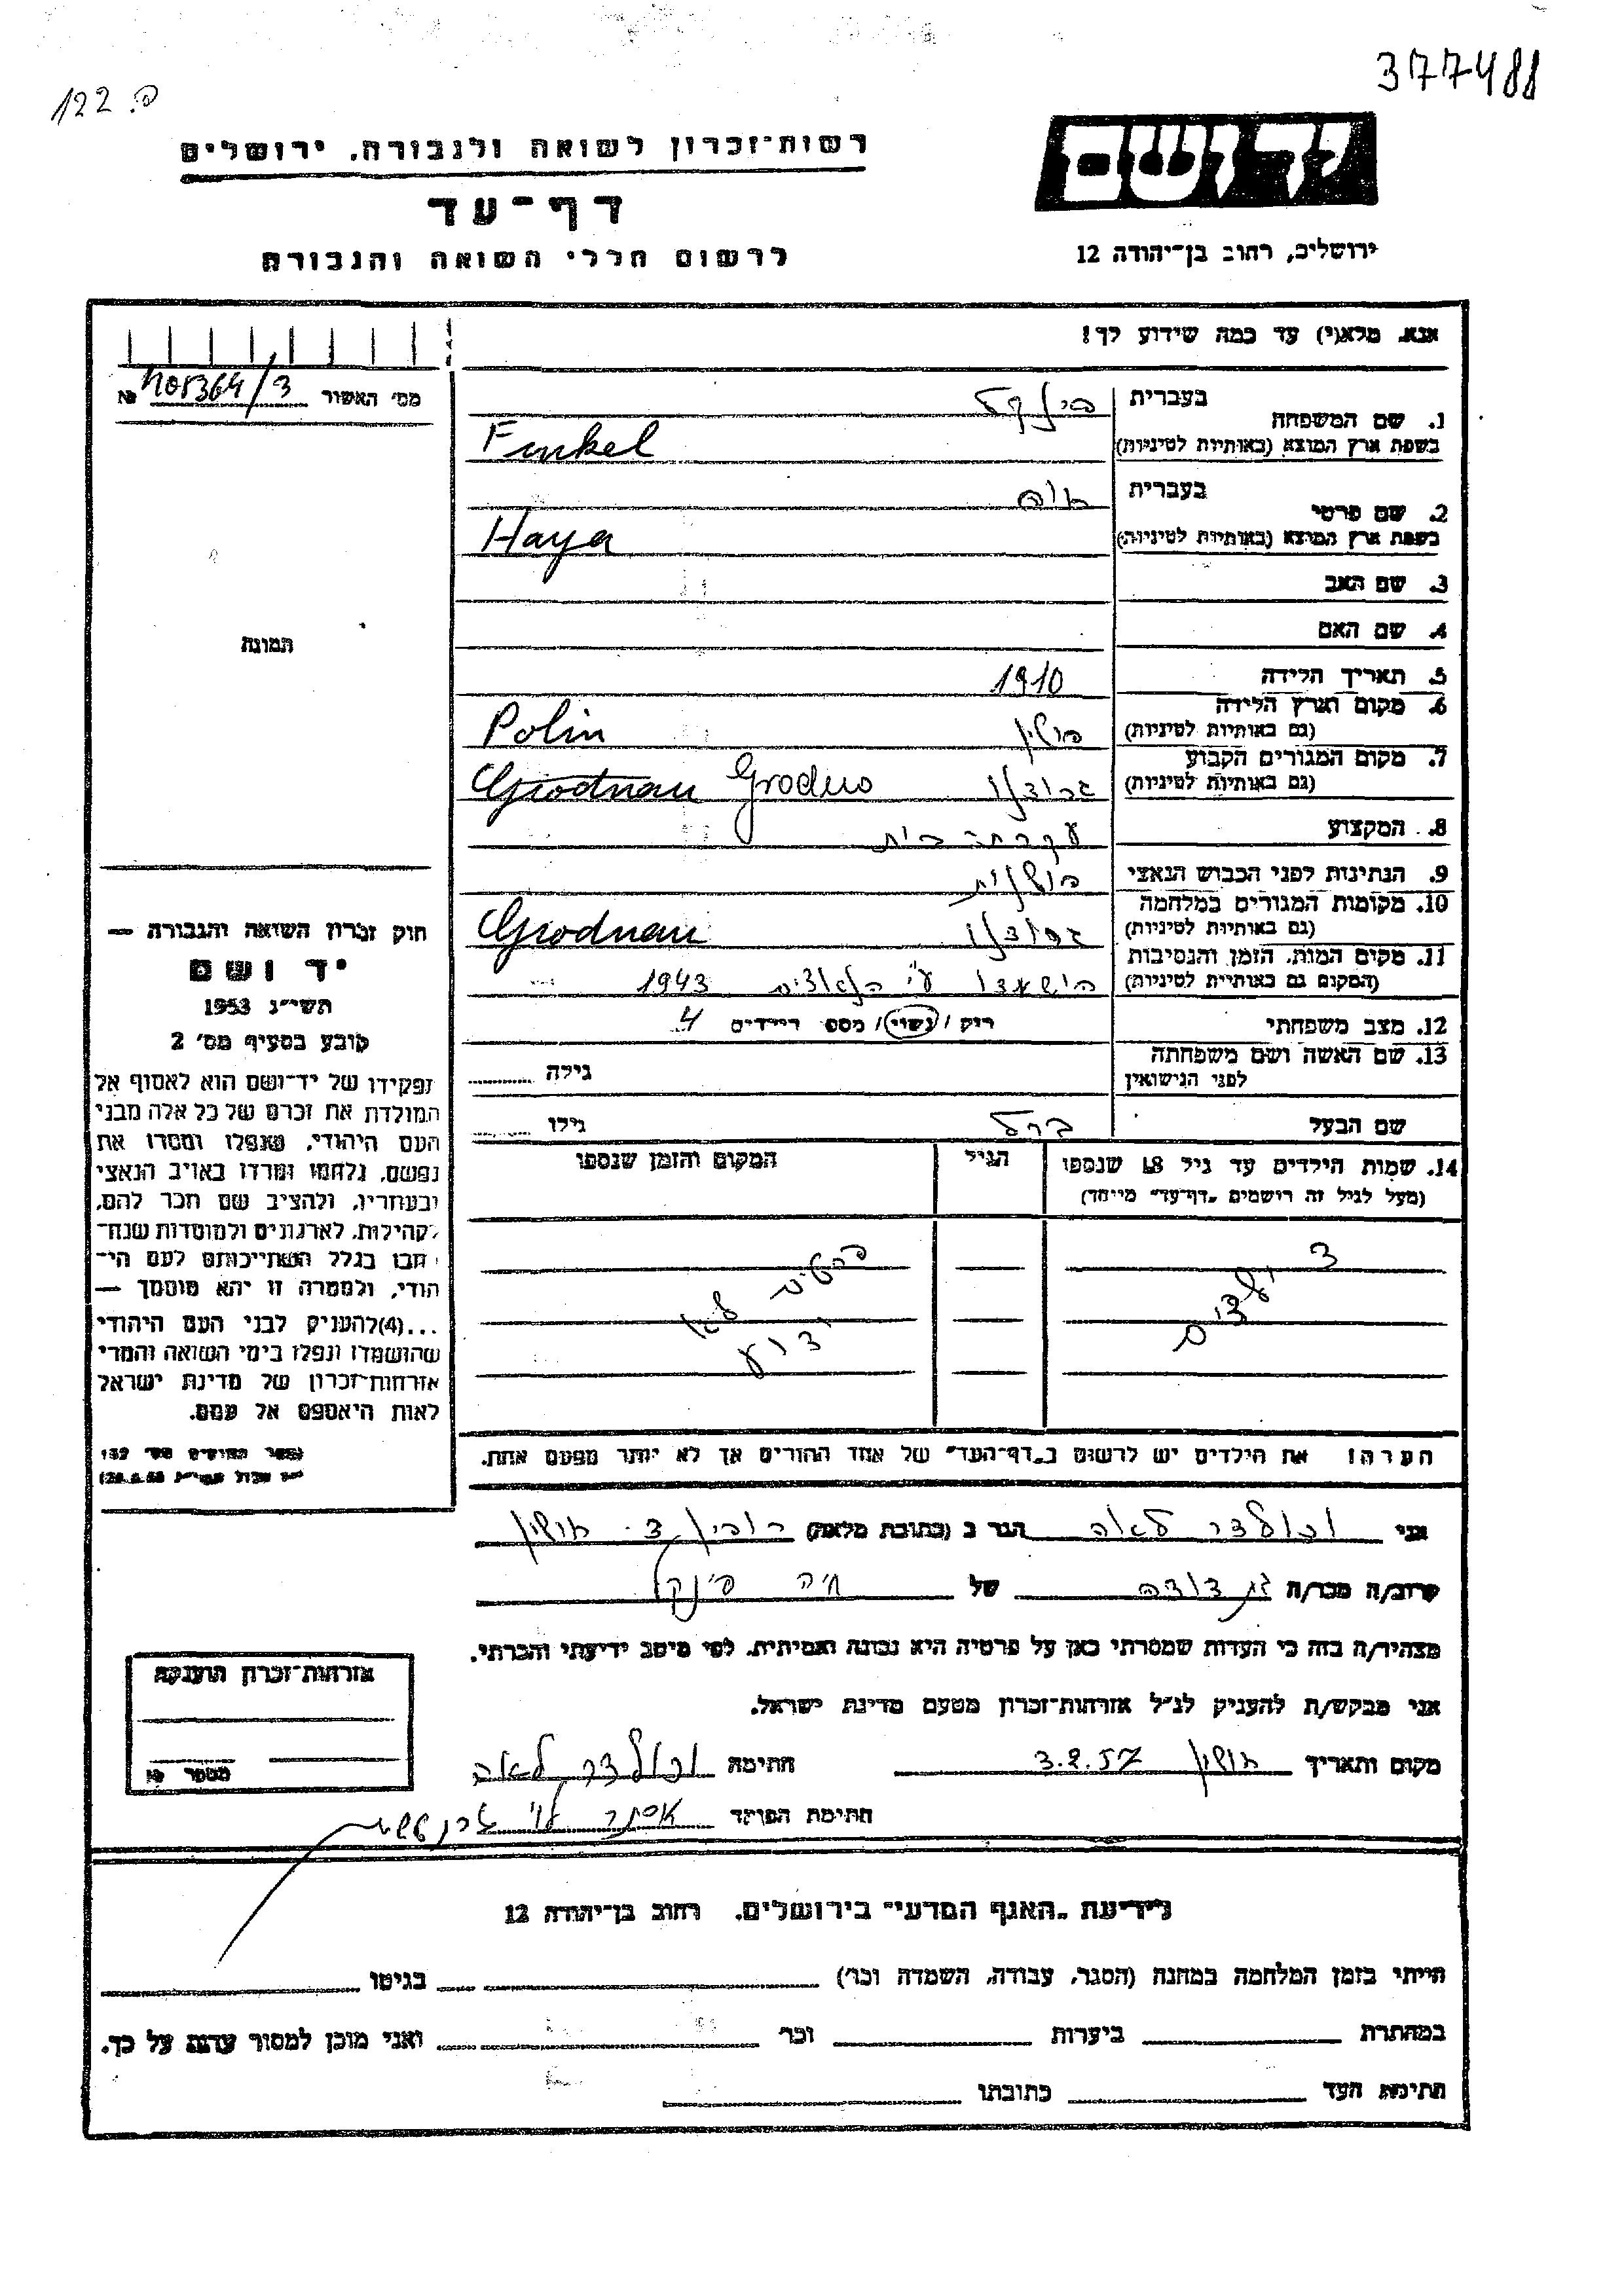 377488
122 .פ
יד ושם
רשות־זכרון לשואה ולגבורה, ירושלים
דף־עד
ירושלים, רחוב בן־יהודה 12
לרשום חללי השואה והגבורה
אנא, מלא(י) עד כמה שידוע לך!
מס׳ האשור /3 №
1. שם המשפחה בעברית פינקל
בשפת ארץ המוצא (באותיות לטיניות) Finkel
2. שם פרטי בעברית חיה
בשפת ארץ המוצא (באותיות לטיניות) Haya
3. שם האב
4. שם האם
תמונה
5. תאריך הלידה 1910
6. מקום וארץ הלידה
(גם באותיות לטיניות) פולין Polin
7. מקום המגורים הקבוע
(גם באותיות לטיניות) גרודנו Grodno Grodnau
8. המקצוע עקרת בית
9. הנתינות לפני הכבוש הנאצי פולנית
10. מקומות המגורים במלחמה
(גם באותיות לטיניות) גרודנו Grodnau
11. מקום המות, הזמן והנסיבות
(המקום גם באותיות לטיניות) הושמדו ע״י הנאצים 1943
12. מצב משפחתי רוק / נשוי / מספר הילדים 4
13. שם האשה ושם משפחתה
לפני הנישואין גילה
שם הבעל ברל גילו
14. שמות הילדים עד גיל 18 שנספו הגיל המקום והזמן שנספו
(מעל לגיל זה רושמים „דף־עד״ מיוחד)
3 ילדים
פרטים לא
ידוע
הערה! את הילדים יש לרשום ב„דף־העד״ של אחד ההורים אך לא יותר מפעם אחת.
חוק זכרון השואה והגבורה —
יד ושם
תשי״ג 1953
קובע בסעיף מס׳ 2
תפקידו של יד־ושם הוא לאסוף אל
המולדת את זכרם של כל אלה מבני
העם היהודי, שנפלו ומסרו את
נפשם, נלחמו ומרדו באויב הנאצי
ובעוזריו, ולהציב שם וזכר להם,
לקהילות, לארגונים ולמוסדות שנח־
רבו בגלל השתייכותם לעם הי־
הודי, ולמטרה זו יהא מוסמך —
...(4) להעניק לבני העם היהודי
שהושמדו ונפלו בימי השואה והמרי
אזרחות־זכרון של מדינת ישראל
לאות היאספם אל עמם.
ספר החוקים מס׳ 132
אני לאה הגר ב (כתובת מלאה)
קרוב/ה מכר/ה בת דודה של חיה פינקל
מצהיר/ה בזה כי העדות שמסרתי כאן על פרטיה היא נכונה ואמיתית, לפי מיטב ידיעתי והכרתי.
אני מבקש/ת להעניק לנ״ל אזרחות־זכרון מטעם מדינת ישראל.
מקום ותאריך 3.2.57 חתימה לאה
חתימת הפוקד אסתר
אזרחות־זכרון הוענקה
מספר №
לידיעת „האגף המדעי״ בירושלים, רחוב בן־יהודה 12
הייתי בזמן המלחמה במחנה (הסגר, עבודה, השמדה וכו׳) בגיטו
במחתרת ביערות וכו׳ ואני מוכן למסור עדות על כך.
חתימת העד כתובתו